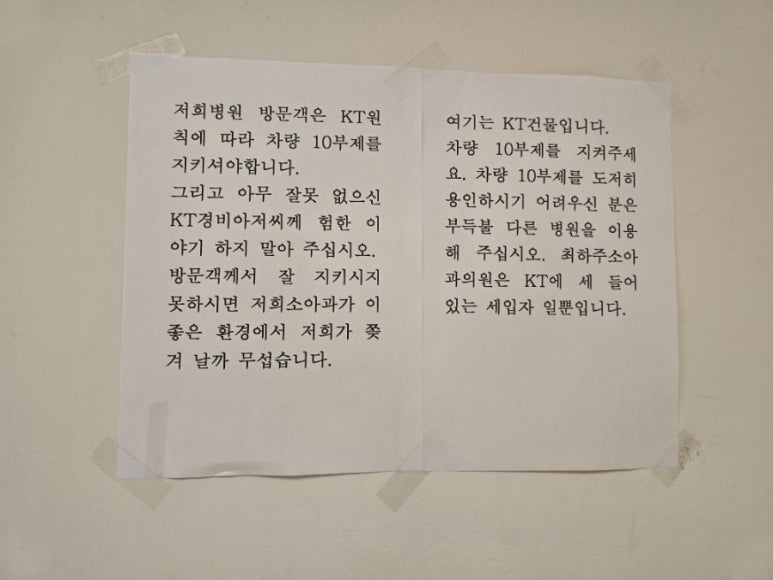 저희병원 방문객은 KT원
칙에 따라 차량 10부제를
지키셔야합니다.
그리고 아무 잘못 없으신
KT경비아저씨께 험한 이
야기 하지 말아 주십시오.
방문객께서 잘 지키시지
못하시면 저희소아과가 이
좋은 환경에서 저희가 쫒
겨 날까 무섭습니다.
여기는 KT건물입니다.
차량 10부제를 지켜주세
요. 차량 10부제를 도저히
용인하시기 어려우신 분은
부득불 다른 병원을 이용
해 주십시오. 최하주소아
과의원은 KT에 세 들어
있는 세입자 일뿐입니다.